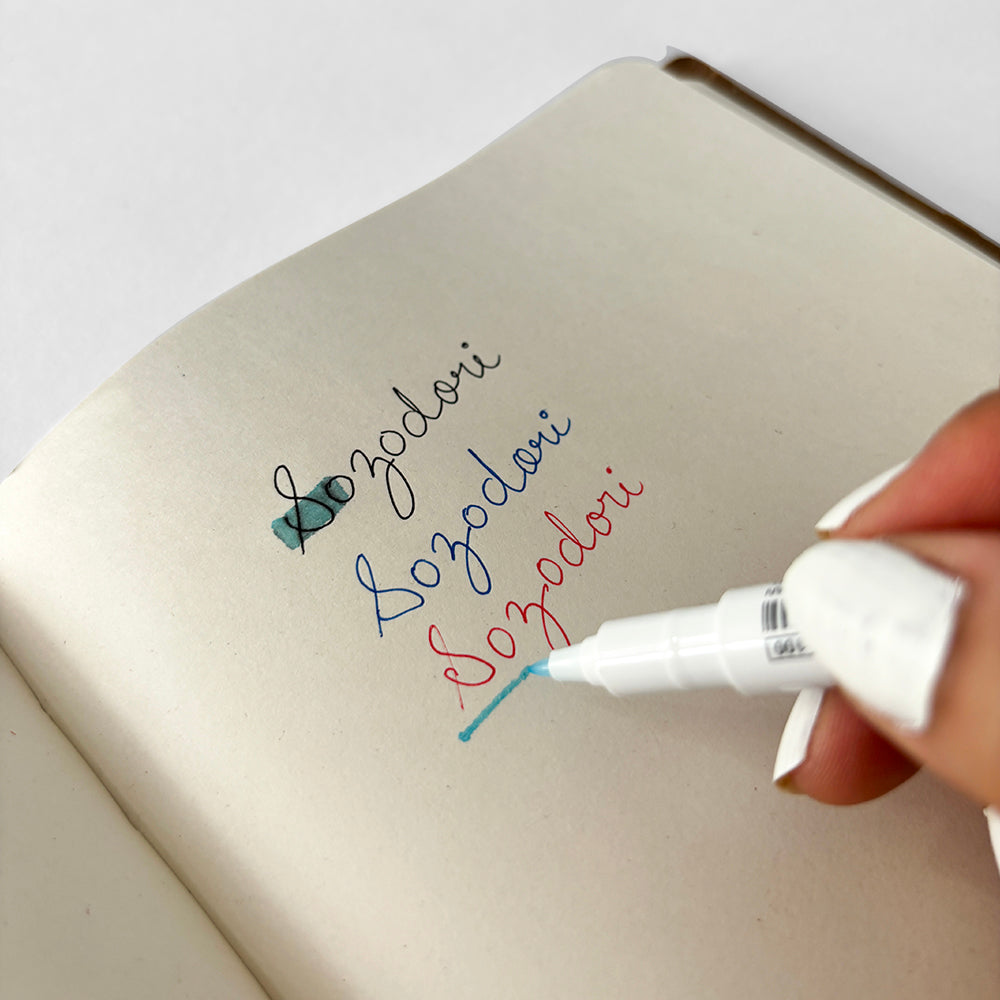 Sozodori
Sozodori
Sozodori